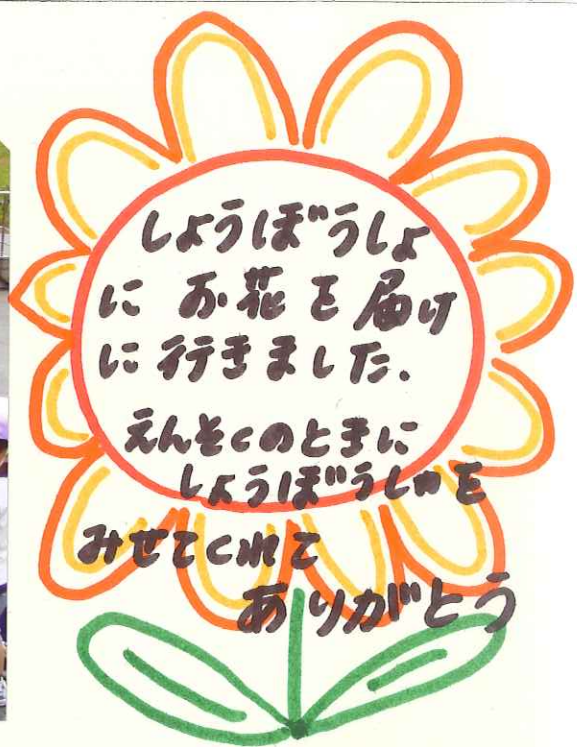 しょうぼうしょ
に お花を届け
に行きました.
えんそくのときに
しょうぼうしゃを
みせてくれて
ありがとう